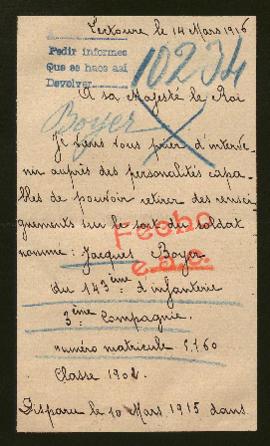 Lectoure le 14 Mars 1916
Pedir informes
Que se hace así
Devolver
10234
A sa Majesté le Roi
Boyer
Je viens vous prier d'interve
nir auprès des personalités capa-
bles de pouvoir retirer des rensei
gnements sur le sort du soldat
nommé: Jacques Boyer
Fecho
du 143ème d'infanterie
3ème Compagnie.
numéro matricule 5160
Classe 1902.
Disparu le 10 Mars 1915 dans